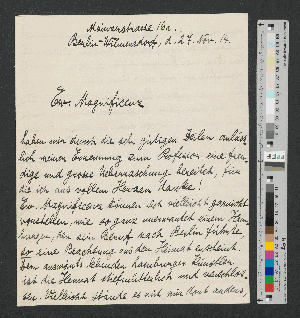 Mainzerstrasse 16a.
Berlin-Wilmersdorf, d. 27. Nov. 14.
Ew. Magnificenz
haben mir durch die sehr gütigen Zeilen anläss-
lich meiner Ernennung zum Professor eine freu-
dige und grosse Ueberraschung bereitet, für
die ich aus vollem Herzen danke!
Ew. Magnificenz können sich vielleicht garnicht
vorstellen, wie so ganz unerwartet einem Ham-
burger, den sein Beruf nach Berlin führte,
eine Beachtung aus der Heimat erscheint.
Dem auswärts lebenden hamburger Künstler
ist die Heimat stiefmütterlich und verschlos-
sen. Vielleicht stände es mit mir dort anders,